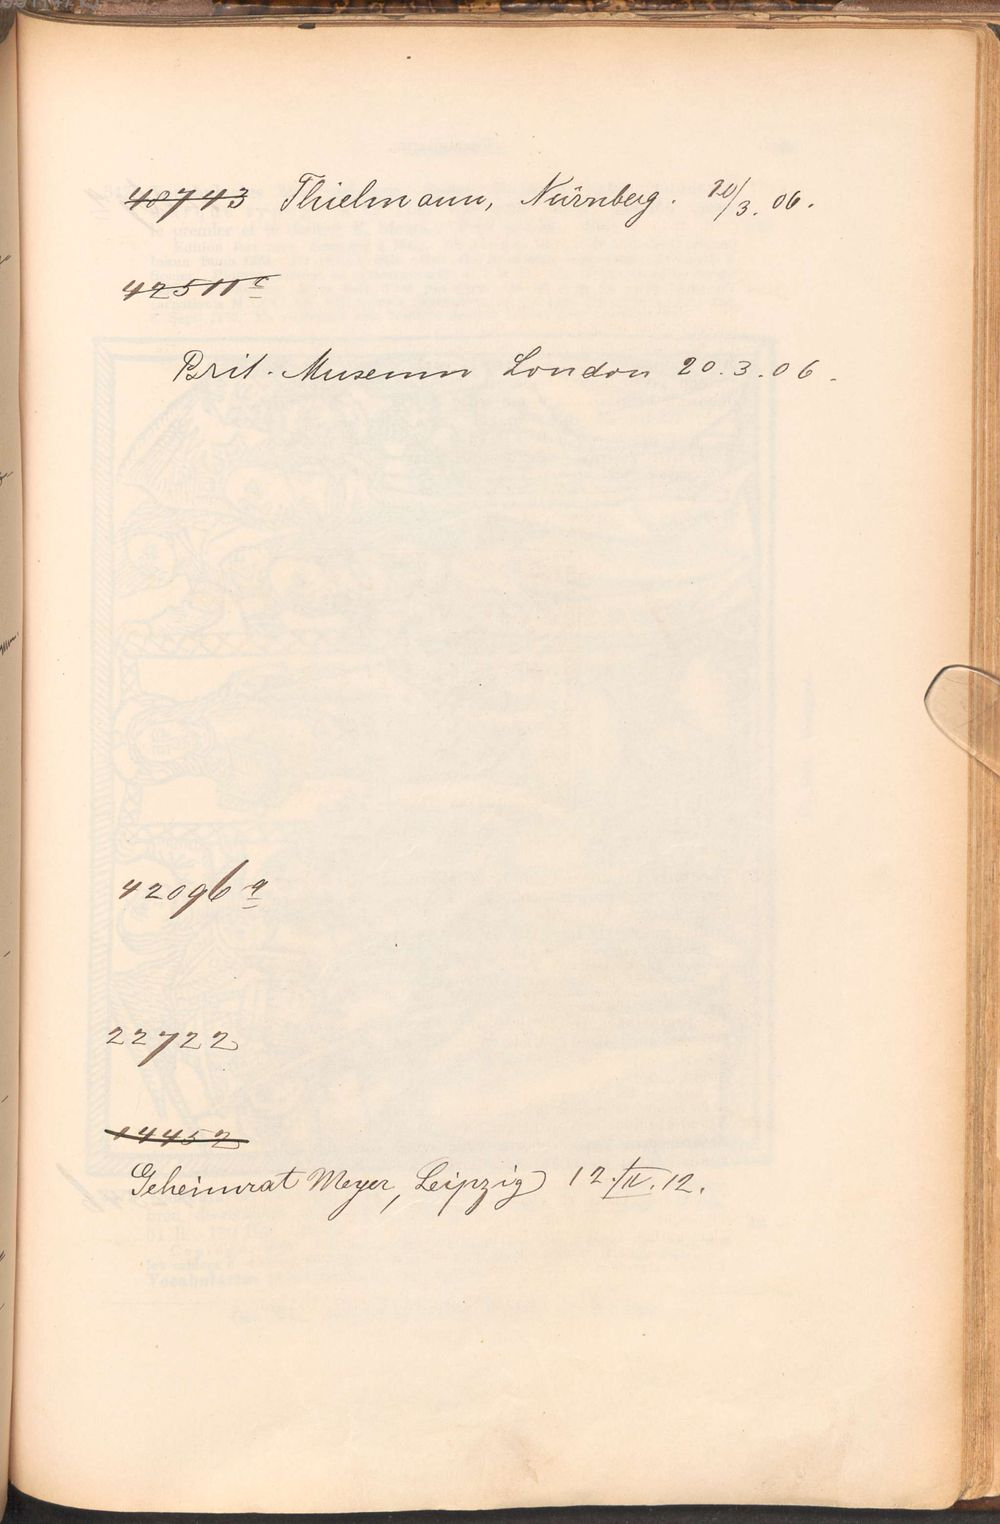 48743 Thielmann, Nürnberg. 20/3. 06.
42511 c
Brit. Museum London 20.3.06.
42096 a
22722
14452
Geheimrat Meyer, Leipzig 12./IV.12.